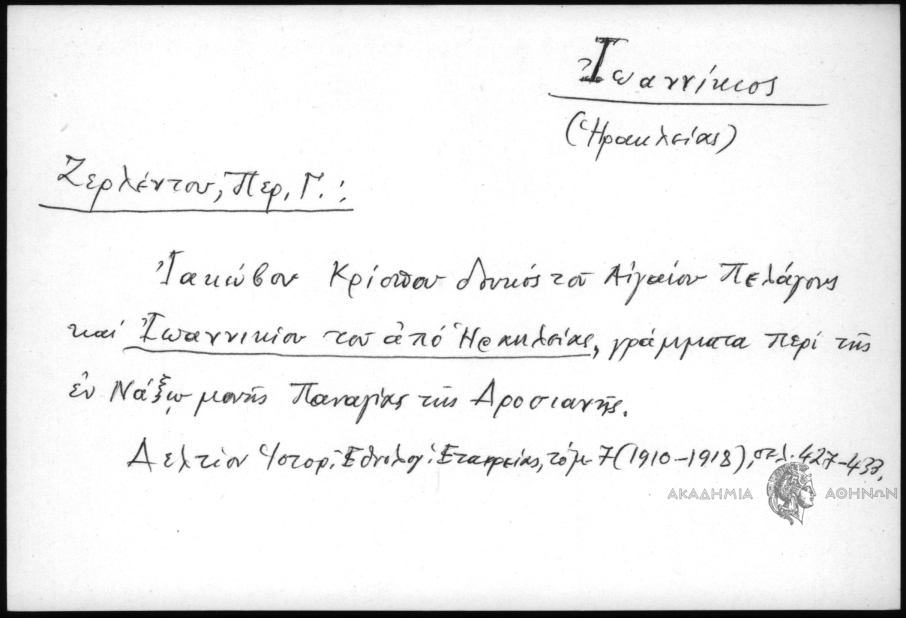 Ἰωαννίκιος
(Ἡρακλείας)
Ζερλέντου, Περ. Γ.:
Ἰακώβου Κρίσπου δουκός τοῦ Αἰγαίου Πελάγους
καί Ἰωαννικίου τοῦ ἀπό Ἡρακλείας, γράμματα περί τῆς
ἐν Νάξῳ μονῆς Παναγίας τῆς Δροσιανῆς.
Δελτίον Ἱστορ. Ἐθνολογ. Ἑταιρείας, τόμ. 7 (1910-1918), σελ. 427-433.
ΑΚΑΔΗΜΙΑ ΑΘΗΝΩΝ